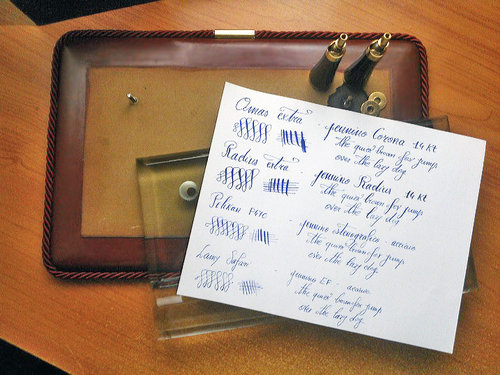 Omas extra - pennino Corona 14 Kt
the quick brown fox jump
over the lazy dog
Radius extra - pennino Radius 14 Kt
the quick brown fox jump
over the lazy dog
Pelikan - pennino stenografico - acciaio
the quick brown fox jump
over the lazy dog
Lamy Safari - pennino EF - acciaio
the quick brown fox jump
over the lazy dog